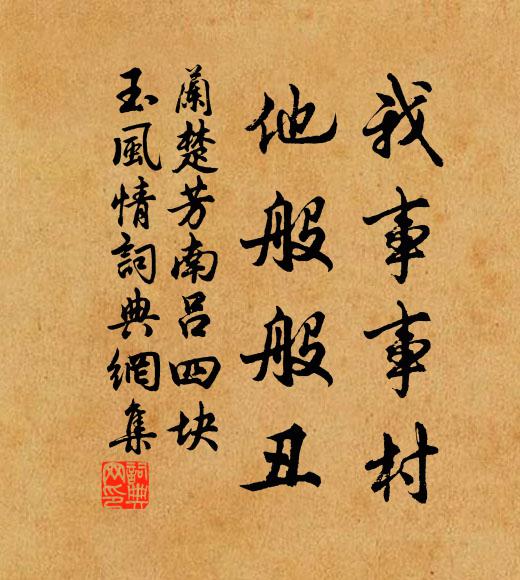 我事事村
他般般丑
蘭楚芳南吕四块
玉風情詞典網集
詞典網印